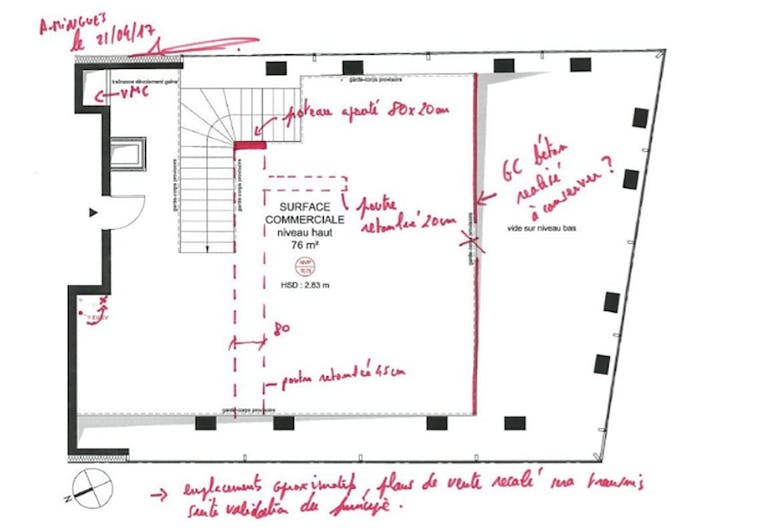 A.MINGUES
le 21/04/17
traînasse dévoiement gaine
garde-corps provisoire
VMC
poteau ajouté 80x20cm
GC béton
réalisé
à conserver ?
garde-corps provisoire
garde-corps provisoire
poutre
retombée 20cm
SURFACE
COMMERCIALE
niveau haut
76 m²
HSD : 2.83 m
garde-corps provisoire
vide sur niveau bas
80
poutre retombée 45cm
garde-corps provisoire
N
→ emplacements aproximatif, plans de vente recalé sera transmis
suite validation du principe.